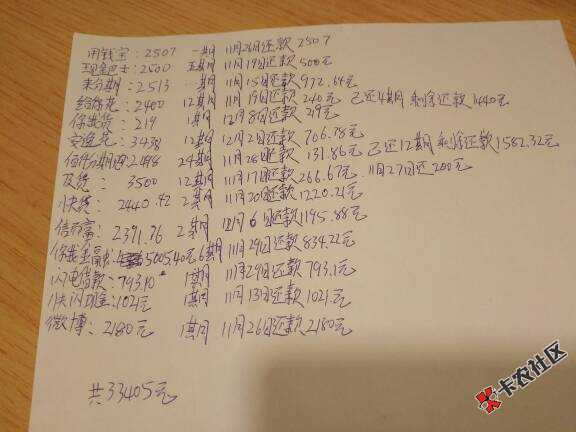 用钱宝:2507 一期 11月26日还款2507
现金巴士:2500 五期 11月19日还款500元
来分期:2513 一期 11月15日还款972.64元
给你花:2400 12期 11月19日还款240元 己还4期 剩余还款1440元
你我贷:219 1期 12月8日还款219元
安逸花:3438 12期 12月2日还款706.78元
佰仟分期 24期 11月28日还款131.86元 己还12期 剩余还款1582.32元
及贷: 3500 12期 11月17日还款266.67元 11月27日还200元
快贷: 2440.42 2期 11月20日还款1220.21元
信而富: 2391.76 2期 12月6日还款1195.88元
你我金融:5005.40元 6期 11月29日还款834.22元
闪电借款:793.10 1期 11月29日还款793.1元
快闪现金:1021元 1期 11月13日还款1021元
微博:2180元 1期 11月26日还款2180元
共33405元
卡农社区